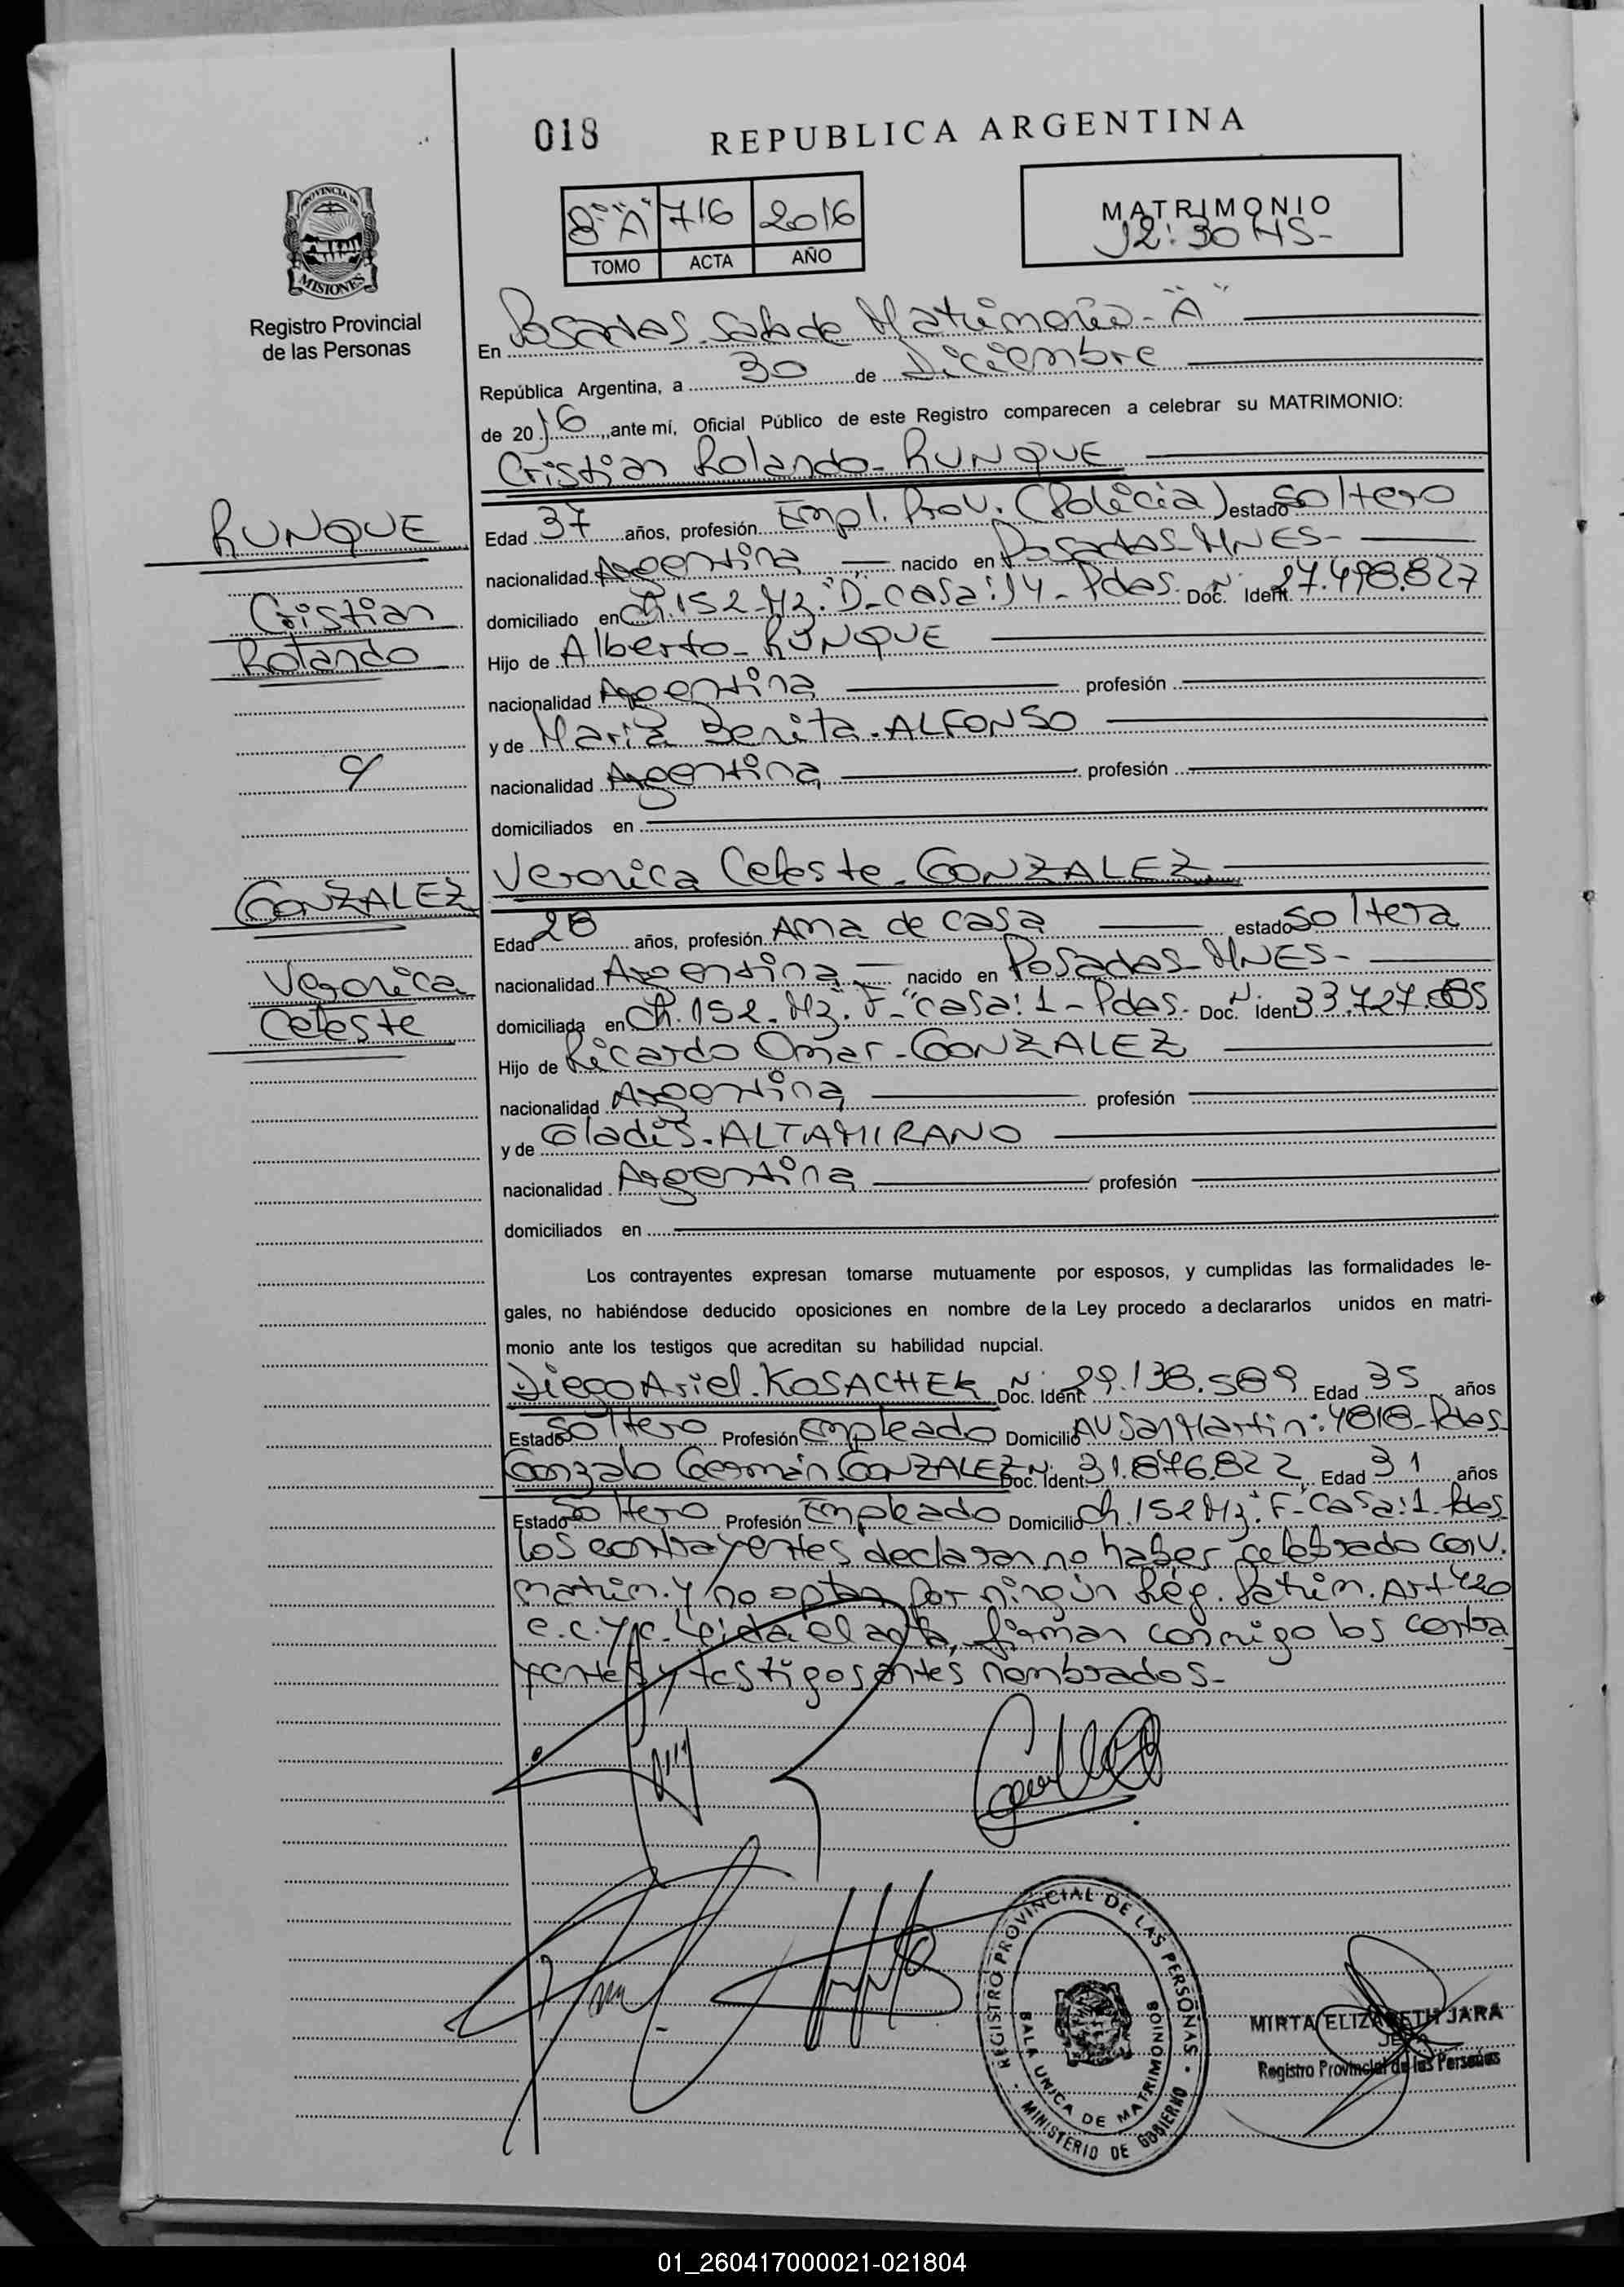 018 REPUBLICA ARGENTINA
8º "A" 716 2016
TOMO ACTA AÑO
MATRIMONIO
12:30 HS-
PROVINCIA DE
MISIONES
Registro Provincial
de las Personas
En Posadas. Sala de Matrimonio - "A"
República Argentina, a 30 de Diciembre
de 2016, ante mí, Oficial Público de este Registro comparecen a celebrar su MATRIMONIO:
Cristian Rolando - RUNQUE
RUNQUE
Cristian
Rolando
Edad 37 años, profesión Empl. Prov. (Policia) estado Soltero
nacionalidad Argentina nacido en Posadas - MNES-
domiciliado en Ch. 152 - Mz. "D" - Casa: 14 - Pdas. Doc. Nº Ident. 27.498.827
Hijo de Alberto - RUNQUE
nacionalidad Argentina profesión
y de Maria Benita - ALFONSO
nacionalidad Argentina profesión
domiciliados en
Veronica Celeste - GONZALEZ
GONZALEZ
Veronica
Celeste
Edad 28 años, profesión Ama de casa estado Soltera
nacionalidad Argentina nacido en Posadas - MNES-
domiciliada en Ch. 152 - Mz. "F" - Casa: 1 - Pdas. Doc. Nº Ident
Hijo de Ricardo Omar - GONZALEZ
nacionalidad Argentina profesión
y de Gladis - ALTAMIRANO
nacionalidad Argentina profesión
domiciliados en
Los contrayentes expresan tomarse mutuamente por esposos, y cumplidas las formalidades le-
gales, no habiéndose deducido oposiciones en nombre de la Ley procedo a declararlos unidos en matri-
monio ante los testigos que acreditan su habilidad nupcial.
Diego Ariel - KOSACHEK Nº Doc. Ident. 29.138.589 Edad 35 años
Estado Soltero Profesión Empleado Domicilio AV San Martin: 4818 - Pdas
Gonzalo Germán GONZALEZ Nº Doc. Ident 31.876.822 Edad 31 años
Estado Soltero Profesión Empleado Domicilio Ch. 152 Mz. "F" - Casa: 1 - Pdas
los contrayentes declaran no haber celebrado conv.
matrim. y no optan por ningún Rég. Patrim. Art 420
e.c.y.c. Leida el acta, firman conmigo los contra
yentes y testigos antes nombrados-
REGISTRO PROVINCIAL DE LAS PERSONAS
SALA UNICA DE MATRIMONIOS
MINISTERIO DE GOBIERNO
MIRTA ELIZABETH JARA
JEFA
Registro Provincial de las Personas
01_260417000021-021804